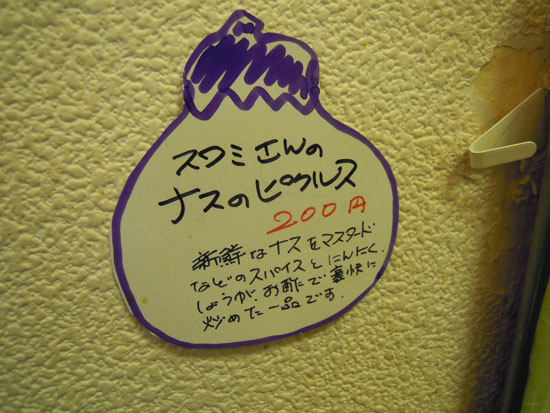 スワミさんの
ナスのピクルス
200円
新鮮なナスをマスタード
などのスパイスとにんにく、
しょうが、お酢で豪快に
炒めた一品です.